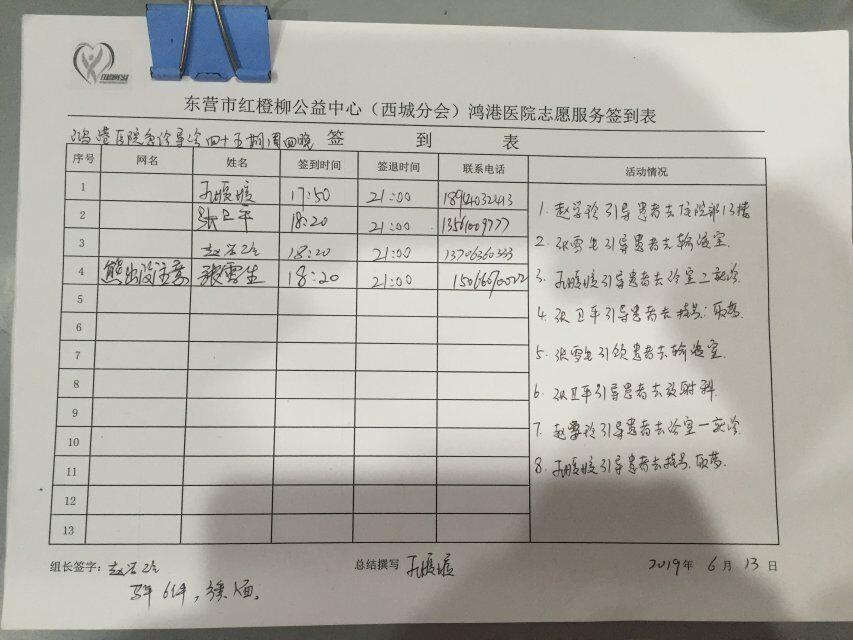 东营市红橙柳公益中心（西城分会）鸿港医院志愿服务签到表
鸿港医院急诊导诊四十五期周四晚 签 到 表
序号 网名 姓名 签到时间 签退时间 联系电话 活动情况
1 孔媛媛 17:50 21:00 18944032413
2 张卫平 18:20 21:00 13561009777
3 18:20 21:00 13706360333
4 熊出没注意 张雪生 18:20 21:00 15066070022
5
6
7
8
9
10
11
12
13
1. 引导患者去住院部13楼
2. 张雪生引导患者去输液室.
3. 孔媛媛引导患者去诊室二就诊.
4. 张卫平引导患者去挂号.取药.
5. 张雪生引领患者去输液室.
6. 张卫平引导患者去放射科.
7. 引导患者去诊室一就诊.
8. 孔媛媛引导患者去挂号.取药.
组长签字： 总结撰写 孔媛媛 2019年 6 月 13 日